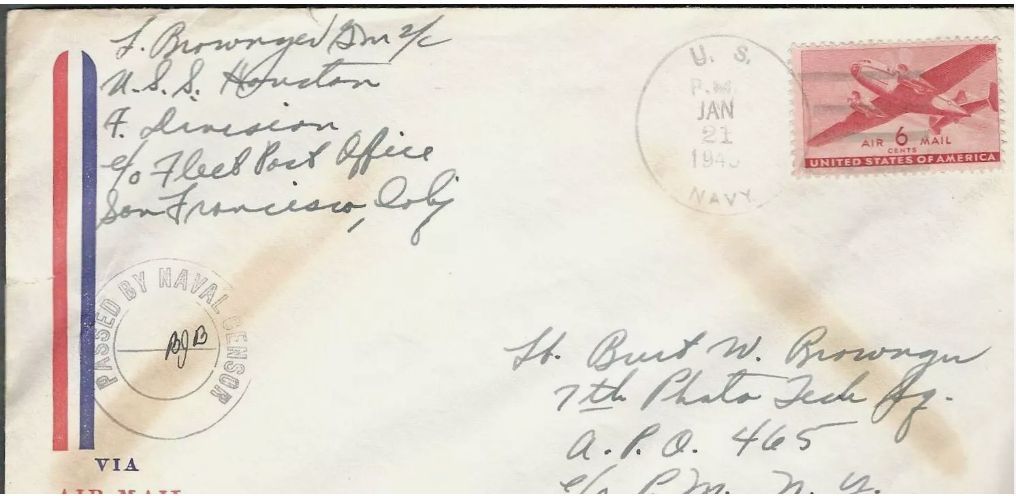 U.S.S. Houston
F. Division
c/o Fleet Post Office
San Francisco, Calif
U. S.
P.M.
JAN
21
NAVY
AIR 6 MAIL
CENTS
UNITED STATES OF AMERICA
PASSED BY NAVAL CENSOR
BJB
Lt. Burt W.
7th Photo Tech
A.P.O. 465
c/o P.M. N.Y.
VIA
AIR MAIL